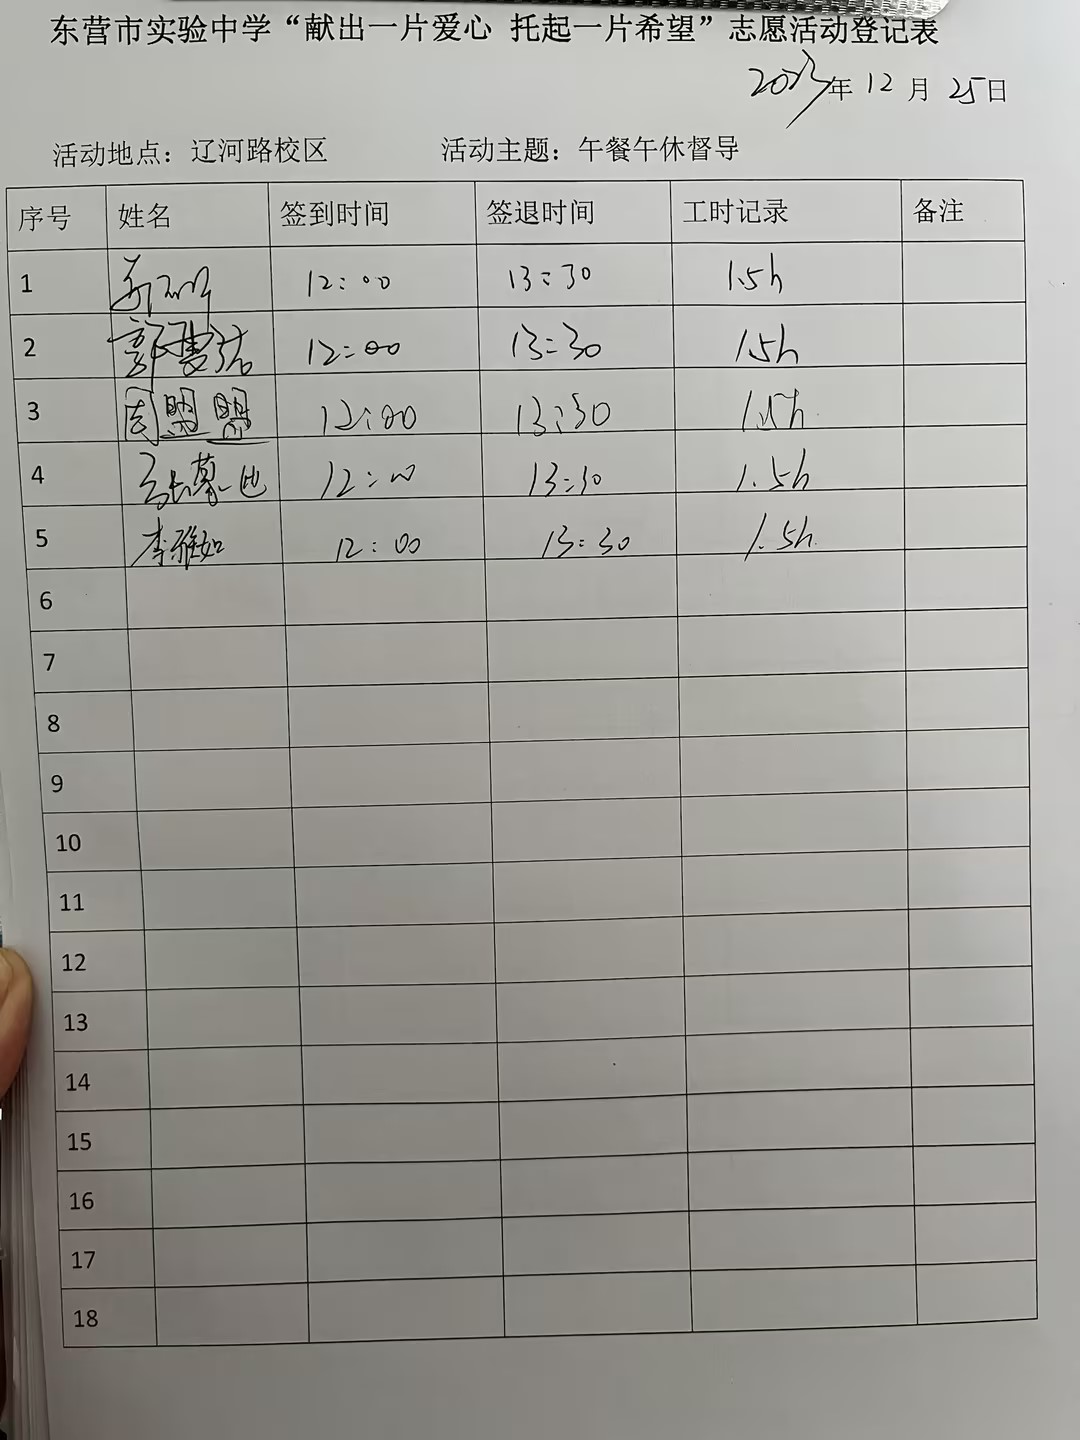 东营市实验中学“献出一片爱心 托起一片希望”志愿活动登记表
2023年 12 月 25日
活动地点：辽河路校区 活动主题：午餐午休督导
序号 姓名 签到时间 签退时间 工时记录 备注
1 12:00 13:30 1.5h
2 12:00 13:30 1.5h
3 周盟盟 12:00 13:30 1.5h
4 12:00 13:30 1.5h
5 李雅如 12:00 13:30 1.5h
6
7
8
9
10
11
12
13
14
15
16
17
18